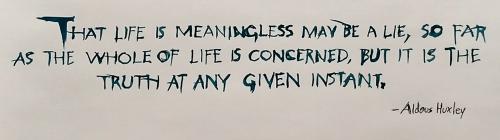 THAT LIFE IS MEANINGLESS MAY BE A LIE, SO FAR
AS THE WHOLE OF LIFE IS CONCERNED, BUT IT IS THE
TRUTH AT ANY GIVEN INSTANT.
-Aldous Huxley